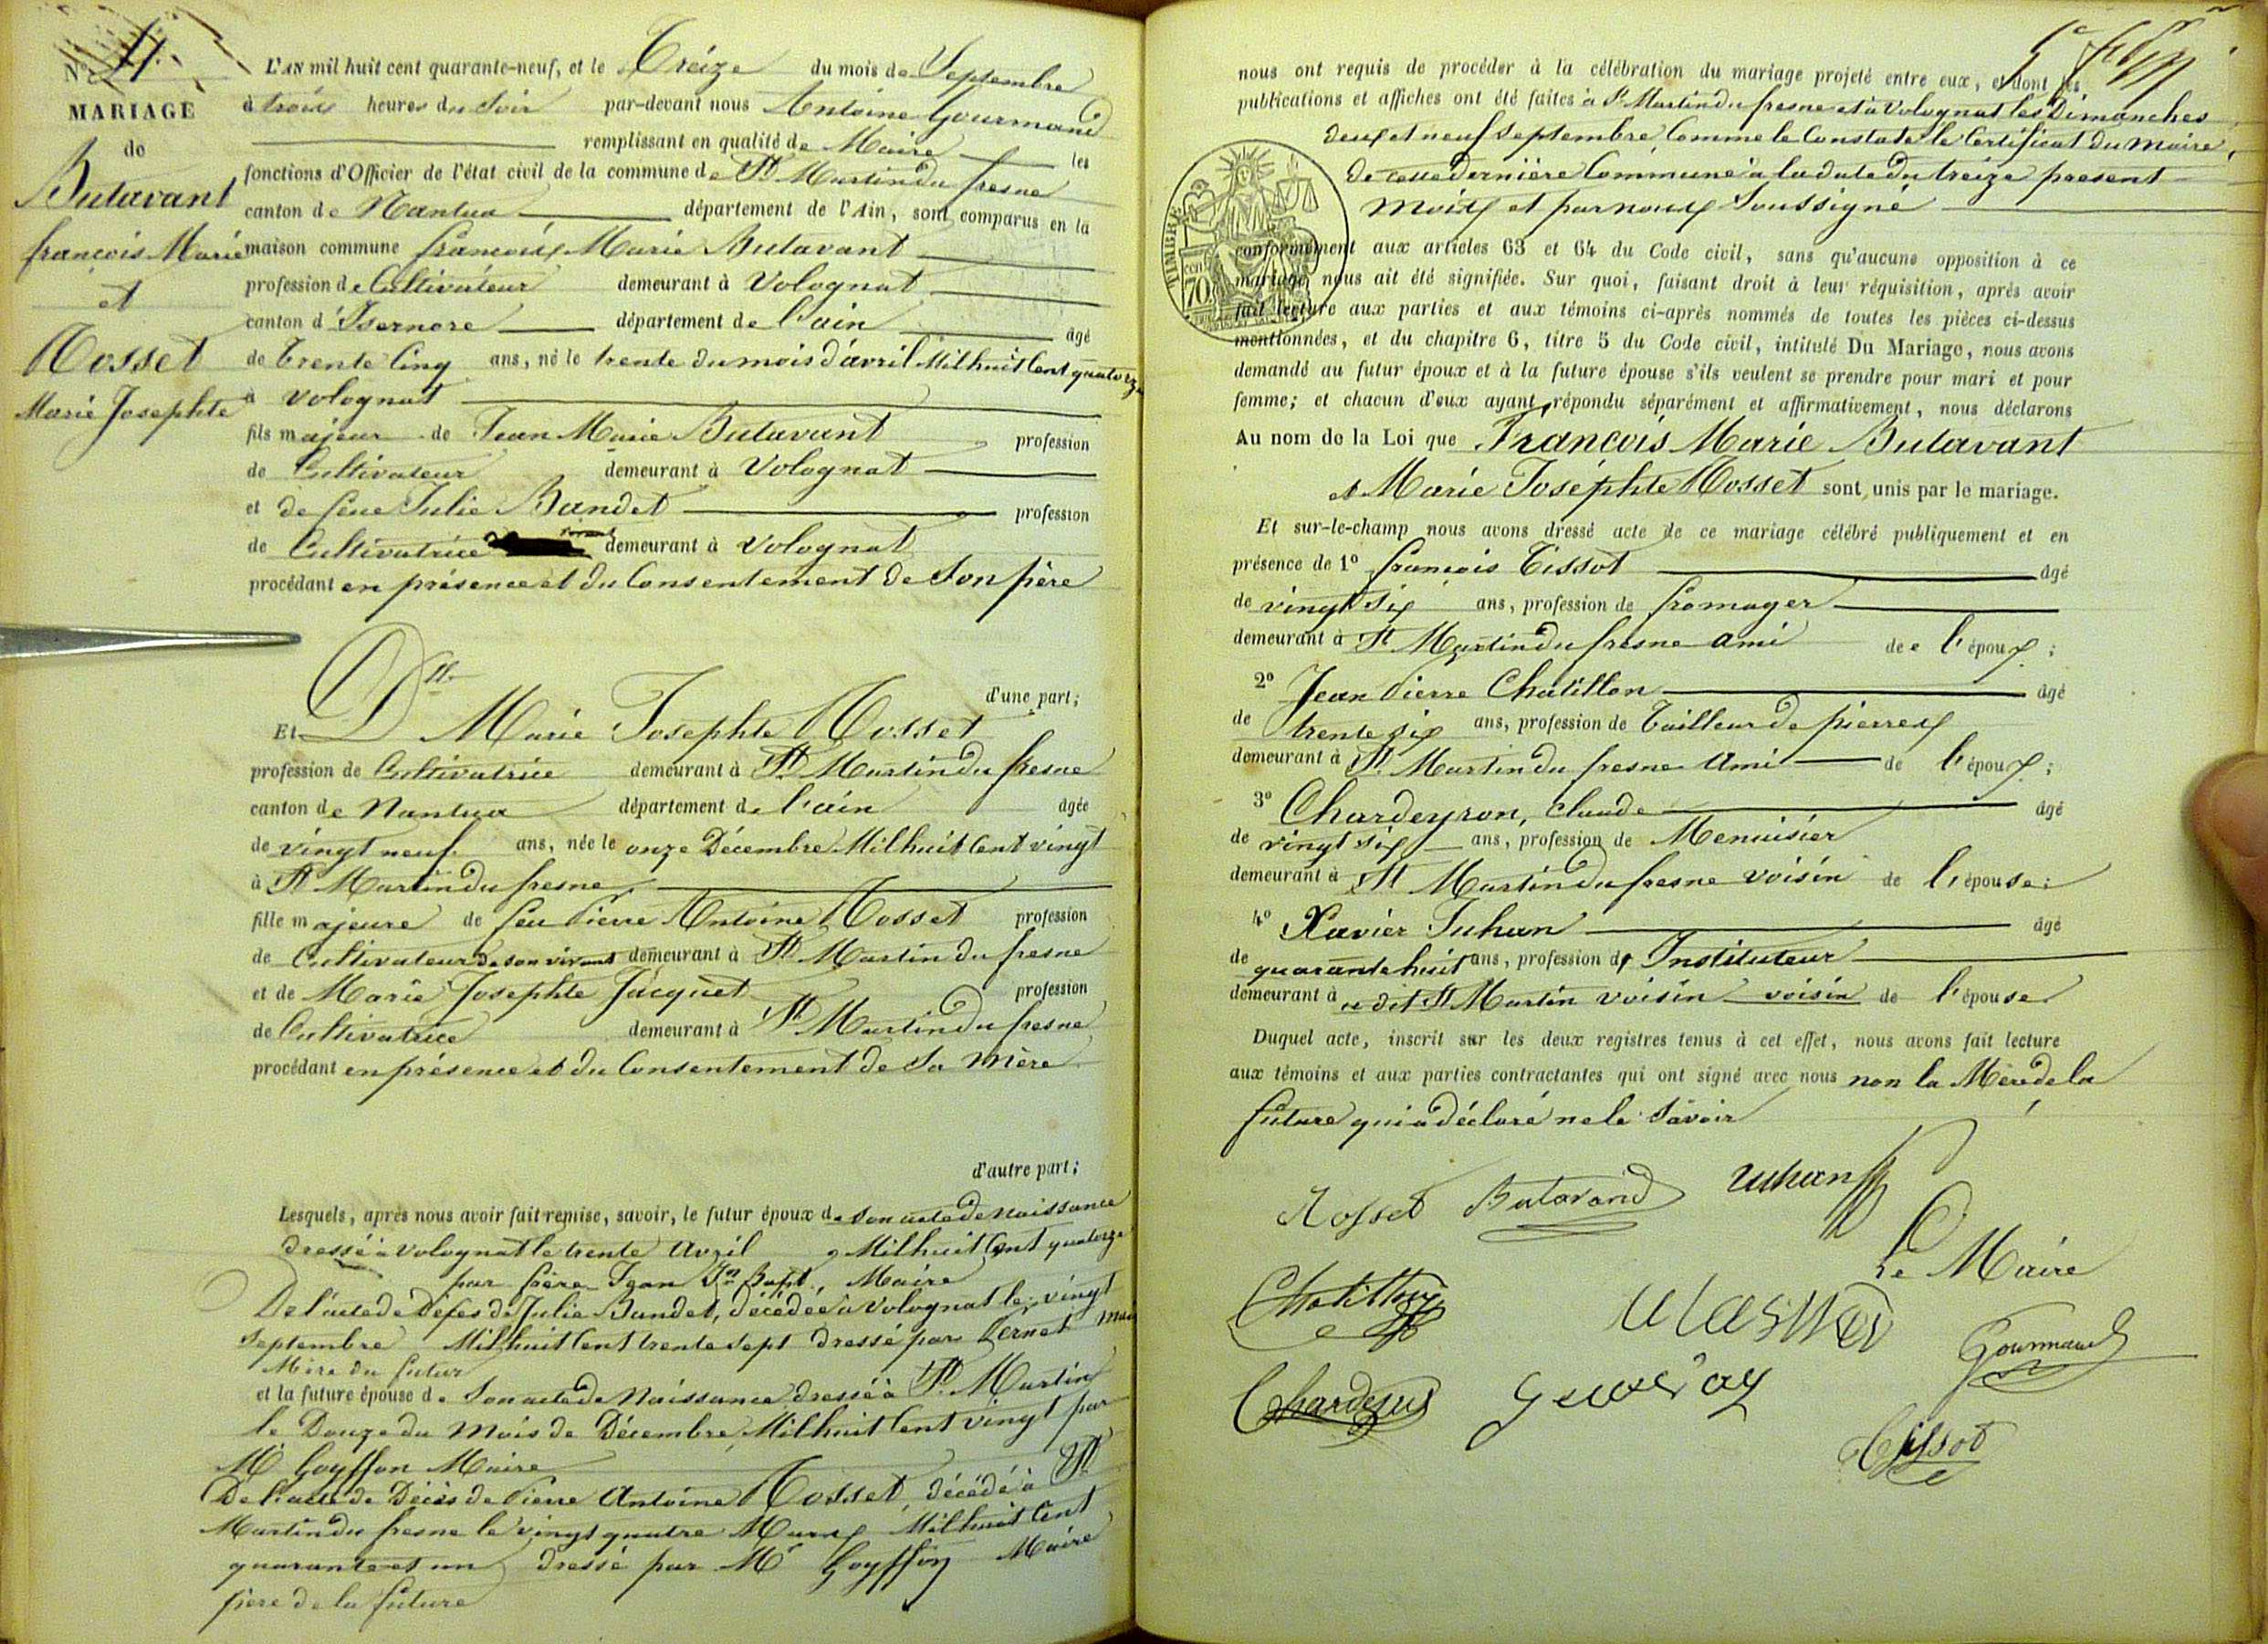 N° 11.
MARIAGE
de
Butavant
françois Marie
et
Mosset
Marie Josephte
L'AN mil huit cent quarante-neuf, et le Treize du mois de Septembre
à trois heures du Soir par-devant nous Antoine Gourmand
remplissant en qualité de Maire les
fonctions d'Officier de l'état civil de la commune de St Martin du fresne
canton de Nantua département de l'Ain, sont comparus en la
maison commune françois Marie Butavant
profession de Cultivateur demeurant à Volognat
canton d'Isernore département de l'ain âgé
de trente Cinq ans, né le trente du mois d'avril Mil huit Cent quatorze
à Volognat
fils majeur de Jean Marie Butavant profession
de Cultivateur demeurant à Volognat
et de feue Julie Bandet profession
de Cultivatrice demeurant à Volognat
procédant en présence et du Consentement de Son père
d'une part;
Et Dlle Marie Josephte Mosset
profession de Cultivatrice demeurant à St Martin du fresne
canton de Nantua département de l'ain âgée
de vingt neuf ans, née le onze Décembre Mil huit Cent vingt
à St Martin du fresne
fille majeure de feu Pierre Antoine Mosset profession
de Cultivateur de son vivant demeurant à St Martin du fresne
et de Marie Josephte Jacquet profession
de Cultivatrice demeurant à St Martin du fresne
procédant en présence et du Consentement de Sa Mère
d'autre part;
Lesquels, après nous avoir fait remise, savoir, le futur époux de Son acte de naissance
dressé à Volognat le trente Avril Mil huit Cent quatorze
par frère Jean Jn Bapt. Maire
De l'acte de Décès de Julie Bandet, décédée à Volognat le vingt
Septembre Mil huit Cent trente sept dressé par Vernet Maire
Mère du futur
et la future épouse de Son acte de Naissance dressé à St Martin
le Douze du Mois de Décembre Mil huit Cent vingt par
Mr Goyffon Maire
De l'acte de Décès de Pierre Antoine Mosset, décédé à St
Martin du fresne le vingt quatre Marx Mil huit Cent
quarante et un dressé par Mr Goyffon Maire
père de la future
nous ont requis de procéder à la célébration du mariage projeté entre eux, et dont les
publications et affiches ont été faites à St Martin du fresne et à Volognat les Dimanches
deux et neuf Septembre, Comme le Constate le Certificat du Maire,
de cette dernière Commune à la date du treize present
moix et par noux Soussigné
TIMBRE
70 cen
conformément aux articles 63 et 64 du Code civil, sans qu'aucune opposition à ce
mariage nous ait été signifiée. Sur quoi, faisant droit à leur réquisition, après avoir
fait lecture aux parties et aux témoins ci-après nommés de toutes les pièces ci-dessus
mentionnées, et du chapitre 6, titre 5 du Code civil, intitulé Du Mariage, nous avons
demandé au futur époux et à la future épouse s'ils veulent se prendre pour mari et pour
femme; et chacun d'eux ayant répondu séparément et affirmativement, nous déclarons
Au nom de la Loi que François Marie Butavant
et Marie Joséphte Mosset sont unis par le mariage.
Et sur-le-champ nous avons dressé acte de ce mariage célébré publiquement et en
présence de 1° françois Tissot âgé
de vingt Six ans, profession de fromager
demeurant à St Martin du fresne ami de l'époux;
2° Jean Pierre Chatillon âgé
de trente six ans, profession de Tailleur de pierrex
demeurant à St Martin du fresne Ami de l'époux;
3° Chardeyron, claude âgé
de vingt six ans, profession de Menuisier
demeurant à St Martin du fresne voisin de l'épouse;
4° Xavier Juhan âgé
de quarante huit ans, profession d' Instituteur
demeurant à ce dit St Martin voisin voisin de l'épouse
Duquel acte, inscrit sur les deux registres tenus à cet effet, nous avons fait lecture
aux témoins et aux parties contractantes qui ont signé avec nous non la Mère de la
future qui a déclaré ne le Savoir
Mosset Butavand Juhan
Le Maire
Chatillon
Gourmand
Tissot